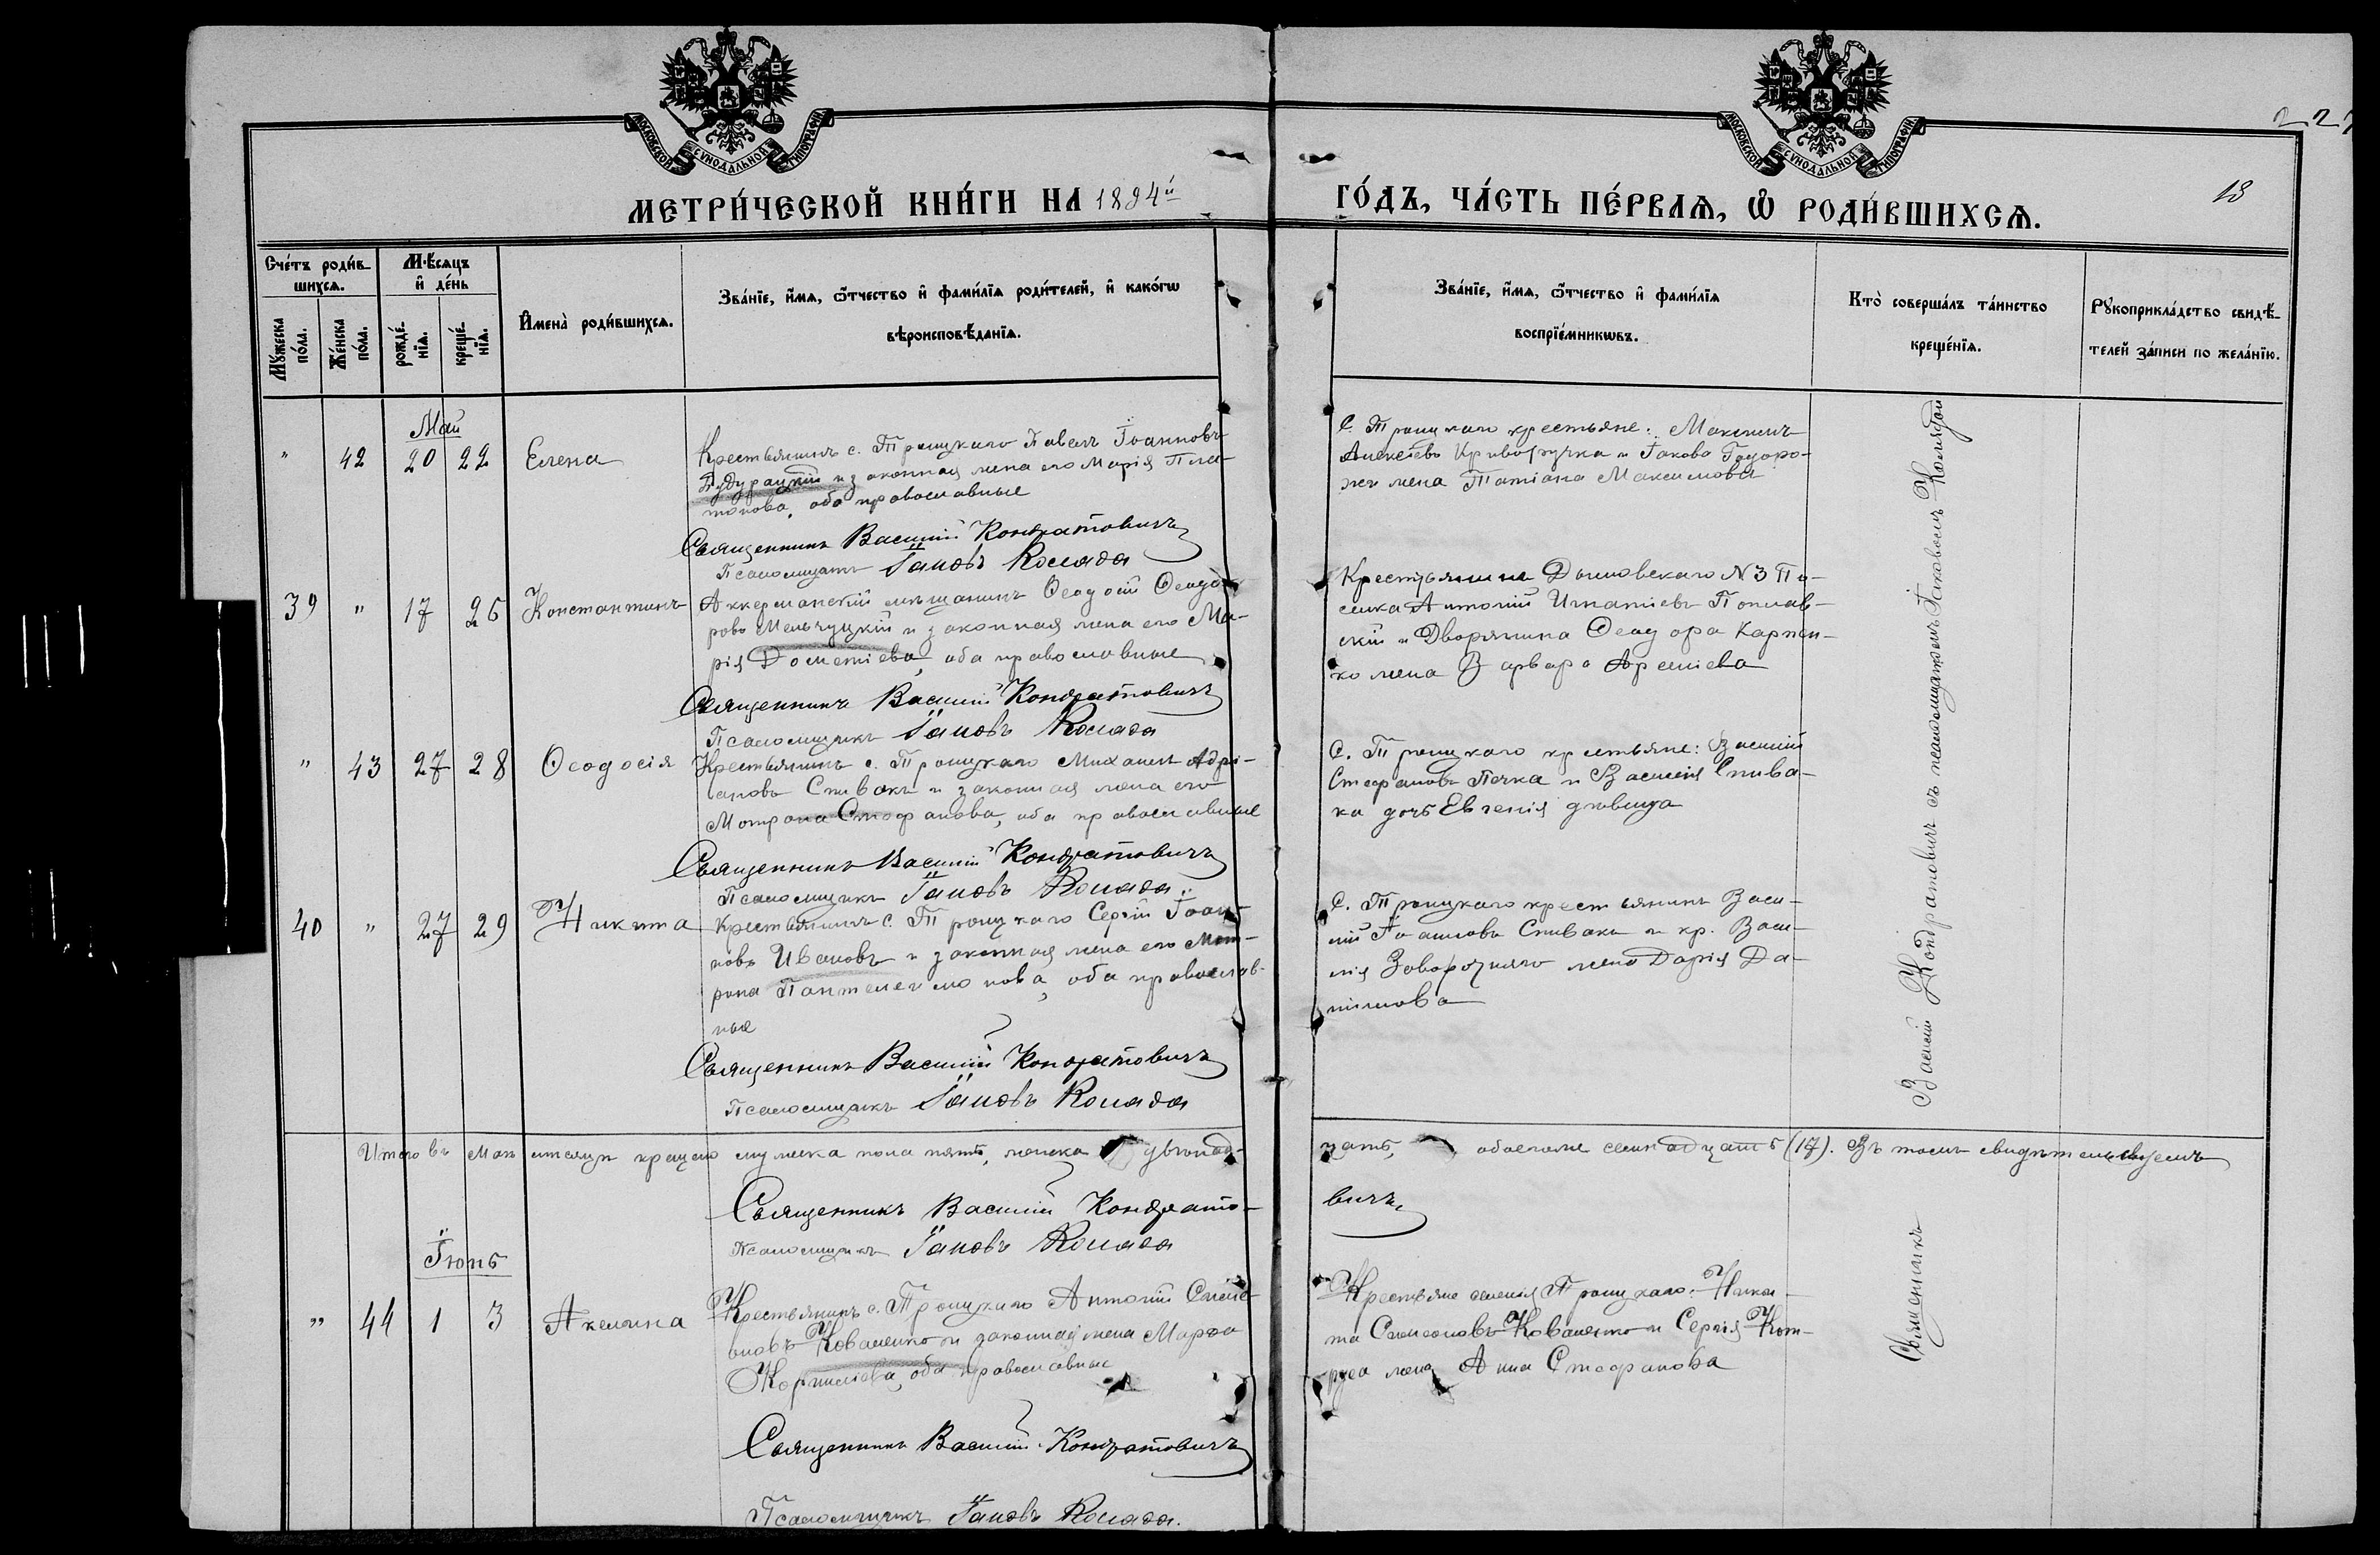 МОСКОВСКОЙ СѴНОДАЛЬНОЙ ТИПОГРАФІИ
МОСКОВСКОЙ СѴНОДАЛЬНОЙ ТИПОГРАФІИ
227
МЕТРИ́ЧЕСКОЙ КНИ́ГИ НА 1894й ГО́ДЪ, ЧА́СТЬ ПЕ́РВАѦ, Ѡ РОДИ́ВШИХСѦ.
18
Сче́тъ роди́в-
шихсѧ.
Мꙋ́жеска по́ла.
Же́нска по́ла.
М·ѣсѧцъ
и҆ де́нь
рожде́-
нїѧ.
креще́-
нїѧ.
И҆мена̀ роди́вшихсѧ.
Зва́нїе, и҆́мѧ, ѻ҆́тчество и҆ фами́лїѧ роди́телей, и҆ како́гѡ
вѣроисповѣ́данїѧ.
Зва́нїе, и҆́мѧ, ѻ҆́тчество и҆ фами́лїѧ
воспрїе́мникѡвъ.
Кто̀ соверша́лъ та́инство
креще́нїѧ.
Рꙋкоприкла́дство свидѣ́-
телей за́писи по жела́нїю.
Май
" 42 20 22 Елена
Крестьянинъ с. Троицкаго Павелъ Іоанновъ
и законная жена его Марія Пла-
тонова, оба православные
Священникъ Василій Кондратовичъ
Псаломщикъ Іаковъ Коляда
С. Троицкаго крестьяне: Максимъ
Алексѣевъ Криворучка и Іакова
жена Татіана Максимова
39 " 17 25 Константинъ
Аккерманскій мѣщанинъ Ѳеодосій Ѳеодо-
ровъ Мельчуцкій и законная жена его Ма-
рія Дометіева, оба православные
Священникъ Василій Кондратовичъ
Псаломщикъ Іаковъ Коляда
Крестьянина Дымовскаго N 3 По-
селка Антоній Игнатіевъ
и Дворянина Ѳеодора Карпен-
ко жена Варвара
" 43 27 28 Ѳеодосія
Крестьянинъ с. Троицкаго Михаилъ Адрі-
ановъ Спивакъ и законная жена его
Мотрона Стефанова, оба православные
Священникъ Василій Кондратовичъ
Псаломщикъ Іаковъ Коляда
С. Троицкаго крестьяне: Василій
Стефановъ Почка и Василія Спива-
ка дочь Евгенія дѣвица
40 " 27 29 Никита
Крестьянинъ с. Троицкаго Сергій Іоан-
новъ Ивановъ и законная жена его Мот-
рона Пантелеимонова, оба православ-
ные
Священникъ Василій Кондратовичъ
Псаломщикъ Іаковъ Коляда
С. Троицкаго крестьянинъ Васи-
лій Іоанновъ Спивакъ и кр. Васи-
лія жена Дарія Да-
ніилова
Василій Кондратовичъ съ псаломщикомъ Іаковомъ Колядой
Итого въ Маѣ мѣсяцѣ крещено мужеска пола пять, женска двѣнад-
цать, обоего семнадцать (17). Въ томъ свидѣтельствуемъ
Священникъ Василій Кондрато-
вичъ
Псаломщикъ Іаковъ Коляда
Іюнь
" 44 1 3 Акелина
Крестьянинъ с. Троицкаго Антоній Симео-
новъ Коваленко и законная жена Марѳа
Корниліева, оба православные
Священникъ Василій Кондратовичъ
Псаломщикъ Іаковъ Коляда.
Крестьяне селенія Троицкаго: Ники-
та Симеоновъ Коваленко и Сергія
жена Анна Стефанова
Священникъ